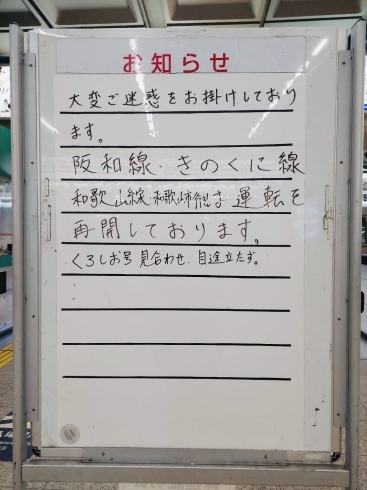 お知らせ
大変ご迷惑をお掛けしており
ます。
阪和線・きのくに線
和歌山線・和歌山市線は運転を
再開しております。
くろしお号 見合わせ 目途立たず。